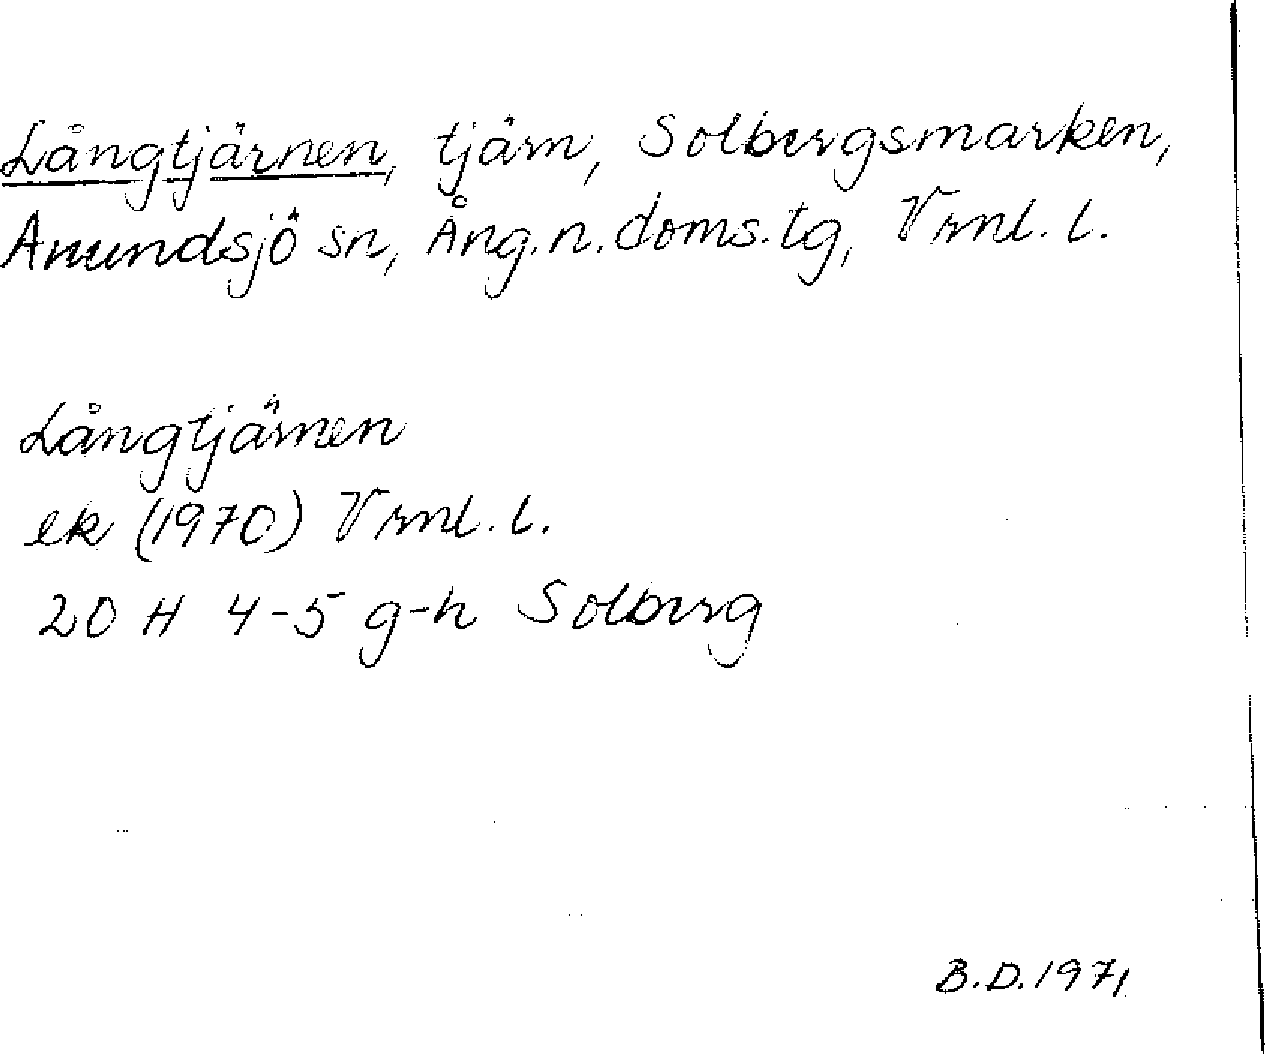 Långtjärnen, tjärn, Solbergsmarken,
Anundsjö sn, Ång.n.doms.tg, Vrnl. l.
Långtjärnen
ek (1970) Vrnl. l.
20 H 4-5 g-h Solberg
B.D.1971